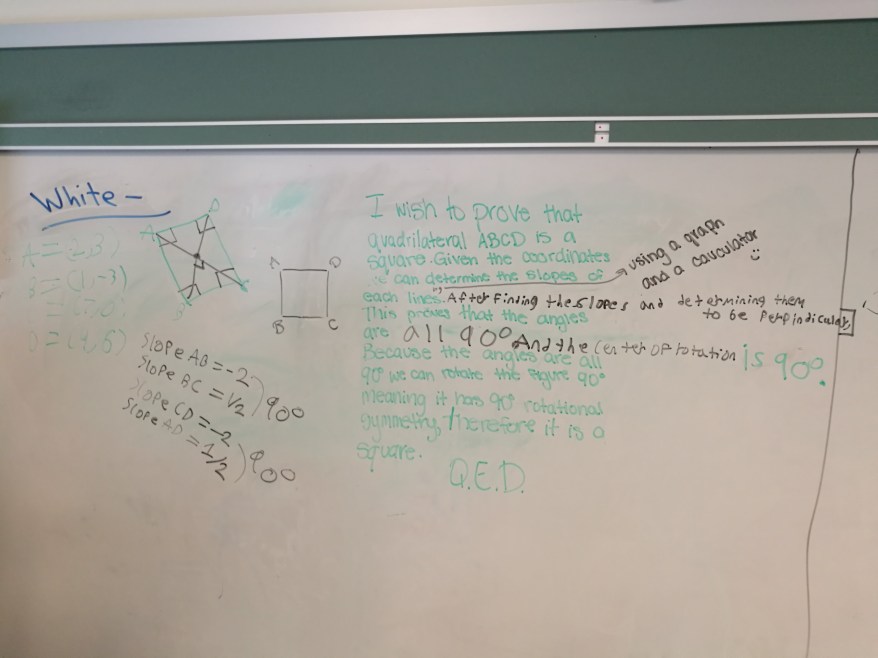 White -
A
D
B
C
A
D
B
C
B = (1,-3)
Slope AB = -2
Slope BC = 1/2
90°
Slope CD = -2
Slope AD = 1/2
90°
I wish to prove that
quadrilateral ABCD is a
square. Given the coordinates
we can determine the slopes of
using a graph
and a cauculator
each lines. After Finding the slopes and determining them
to be Perpindicular,
This proves that the angles
are all 90° And the Center OF rotation is 90°.
Because the angles are all
90° we can rotate the figure 90°
meaning it has 90° rotational
symmetry, Therefore it is a
square.
Q.E.D.